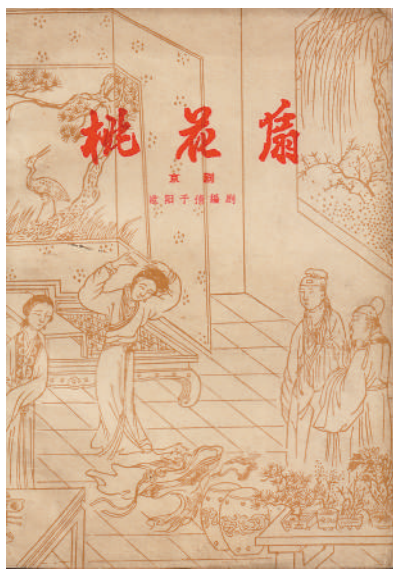 桃花扇
京剧
欧阳予倩編剧